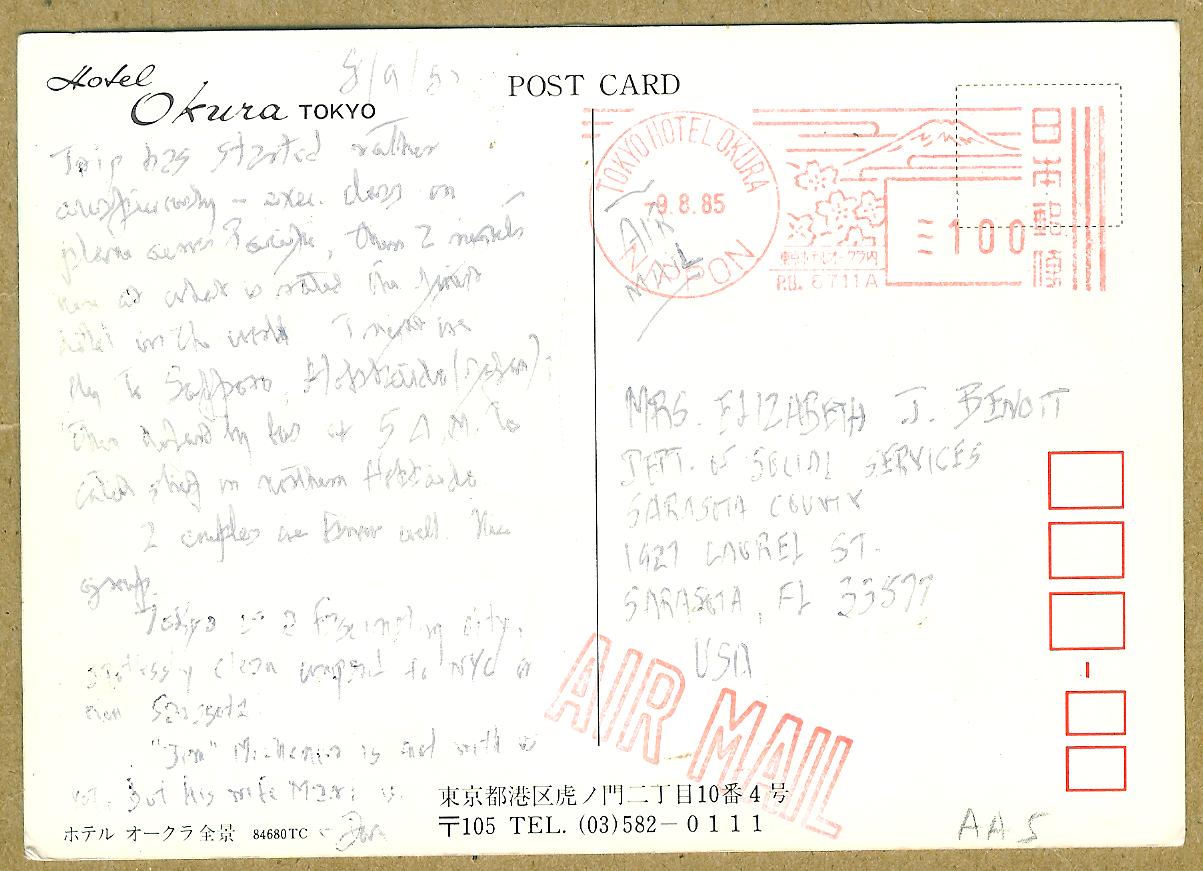 Hotel
Okura TOKYO
8/9/85
POST CARD
Trip has started rather
auspiciously – exec. class on
plane across Pacific, then 2 nights
here at what is rated the finest
hotel in the world. Tonight we
fly to Sapporo, Hokkaido (Japan);
then by bus at 5 A.M. to
catch ship in northern Hokkaido
2 couples we know well. Nice
group.
Tokyo is a fascinating city,
spotlessly clean compared to NYC or
even Sarasota.
"Jim" Michener is not with us
yet, but his wife Mari is.
ホテル オークラ全景 84680TC
東京都港区虎ノ門二丁目10番4号
〒105 TEL. (03)582-0111
TOKYO HOTEL OKURA
-9.8.85
NIPPON
AIR
MAIL
東京ホテルオークラ内
P.O. 6711A
100
日本郵便
MRS. ELIZABETH J. BENOIT
DEPT. OF SOCIAL SERVICES
SARASOTA COUNTY
1927 LAUREL ST.
SARASOTA, FL 33577
USA
AIR MAIL
AA5